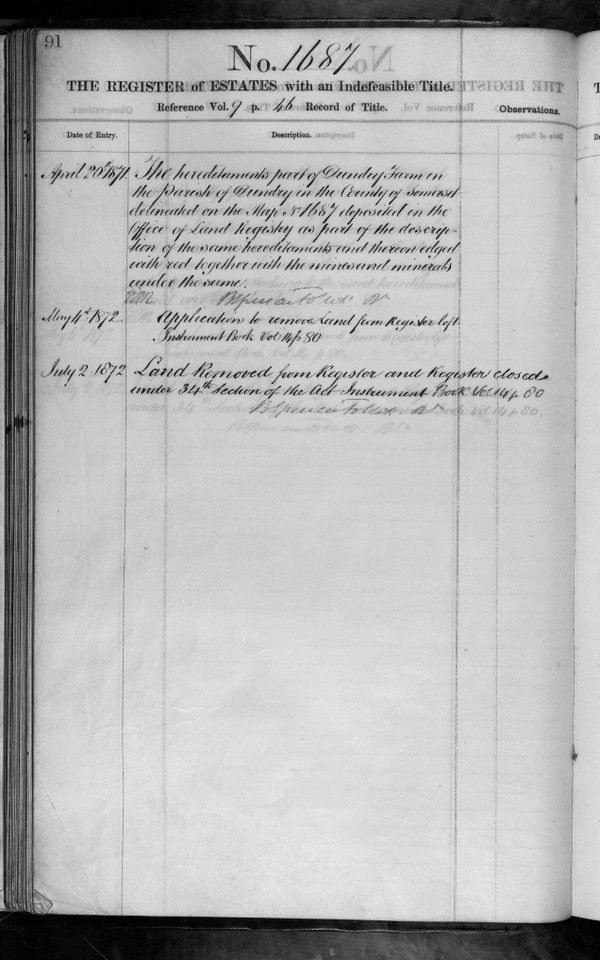 91
No. 1687
THE REGISTER of ESTATES with an Indefeasible Title.
Reference Vol. 9 p. 46 Record of Title.
Observations.
Date of Entry.
Description.
April 20th 1871
The hereditaments part of Dundry Farm in
the Parish of Dundry in the County of Somerset
delineated on the Map No 1687 deposited in the
Office of Land Registry as part of the descrip-
tion of the same hereditaments and thereon edged
with red together with the mines and minerals
under the same.
May 4th 1872.
Application to remove Land from Register left
Instrument Book Vol 14 p 80
July 2 1872
Land Removed from Register and Register closed
under 34th Section of the Act Instrument Book Vol 14 p 80